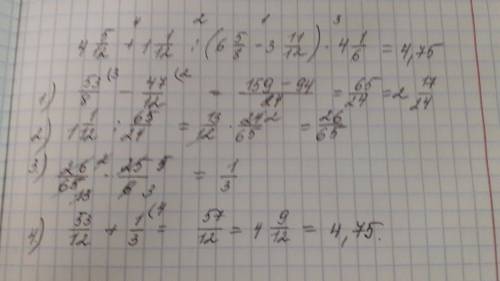 4 2 1 3
4 5/12 + 1 1/12 : (6 5/8 - 3 11/12) · 4 1/6 = 4,75
1) 53/8 (3 - 47/12 (2 = 159 - 94/24 = 65/24 = 2 17/24
2) 1 1/12 : 65/24 = 13/12 · 24/65 2 = 26/65
3) 26/65 2 13 · 25/6 5 3 = 1/3
4) 53/12 + 1/3 (4 = 57/12 = 4 9/12 = 4,75.